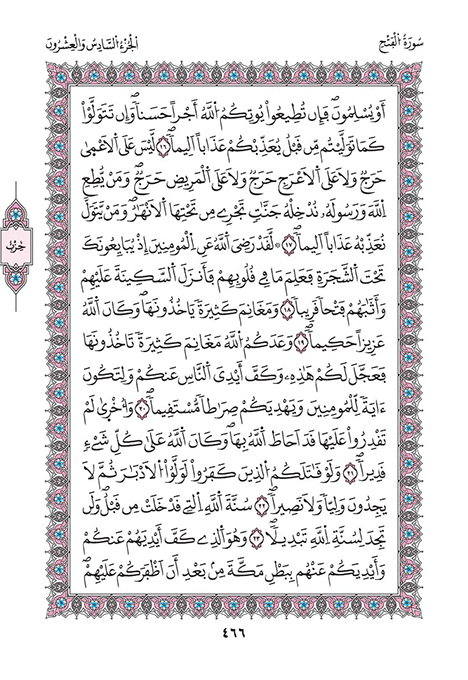 سُورَةُ الْفَتْحِ
الْجُزْءُ السَّادِسُ وَالْعِشْرُونَ
أَوْ يُسْلِمُونَۖ فَإِن تُطِيعُواْ يُوتِكُمُ اللَّهُ أَجْراً حَسَناًۖ وَإِن تَتَوَلَّوْاْ
كَمَا تَوَلَّيْتُم مِّن قَبْلُ يُعَذِّبْكُمْ عَذَاباً اَلِيماًۖ ١٦ لَّيْسَ عَلَى اَلَاعْمَىٰ
حَرَجٌ وَلَا عَلَى اَلَاعْرَجِ حَرَجٌ وَلَا عَلَى اَلْمَرِيضِ حَرَجٌۖ وَمَنْ يُّطِعِ
اِللَّهَ وَرَسُولَهُۥ نُدْخِلْهُ جَنَّٰتٍ تَجْرِے مِن تَحْتِهَا اَلَانْهَٰرُۖ وَمَنْ يَّتَوَلَّ
نُعَذِّبْهُ عَذَاباً اَلِيماًۖ ١٧ لَّقَدْ رَضِيَ اَللَّهُ عَنِ اِلْمُومِنِينَ إِذْ يُبَايِعُونَكَ
تَحْتَ اَلشَّجَرَةِ فَعَلِمَ مَا فِے قُلُوبِهِمْ فَأَنزَلَ اَلسَّكِينَةَ عَلَيْهِمْ
وَأَثَٰبَهُمْ فَتْحاً قَرِيباًۖ ١٨ وَمَغَانِمَ كَثِيرَةً يَاخُذُونَهَاۖ وَكَانَ اَللَّهُ
عَزِيزاً حَكِيماًۖ ١٩ وَعَدَكُمُ اُللَّهُ مَغَانِمَ كَثِيرَةً تَاخُذُونَهَا
فَعَجَّلَ لَكُمْ هَٰذِهِۦ وَكَفَّ أَيْدِيَ اَلنَّاسِ عَنكُمْ وَلِتَكُونَ
ءَايَةً لِّلْمُومِنِينَ وَيَهْدِيَكُمْ صِرَٰطاً مُّسْتَقِيماًۖ ٢٠ وَأُخْرَىٰ لَمْ
تَقْدِرُواْ عَلَيْهَا قَدَ اَحَاطَ اَللَّهُ بِهَاۖ وَكَانَ اَللَّهُ عَلَىٰ كُلِّ شَےْءٍ
قَدِيراًۖ ٢١ وَلَوْ قَٰتَلَكُمُ اُلذِينَ كَفَرُواْ لَوَلَّوُاْ اُلَادْبَٰرَ ثُمَّ لَا
يَجِدُونَ وَلِيّاً وَلَا نَصِيراًۖ ٢٢ سُنَّةَ اَللَّهِ اِلتِے قَدْ خَلَتْ مِن قَبْلُۖ وَلَن
تَجِدَ لِسُنَّةِ اِللَّهِ تَبْدِيلاًۖ ٢٣ وَهُوَ اَلذِے كَفَّ أَيْدِيَهُمْ عَنكُمْ
وَأَيْدِيَكُمْ عَنْهُم بِبَطْنِ مَكَّةَ مِنۢ بَعْدِ أَنَ اَظْفَرَكُمْ عَلَيْهِمْۖ
حزب
٤٦٦